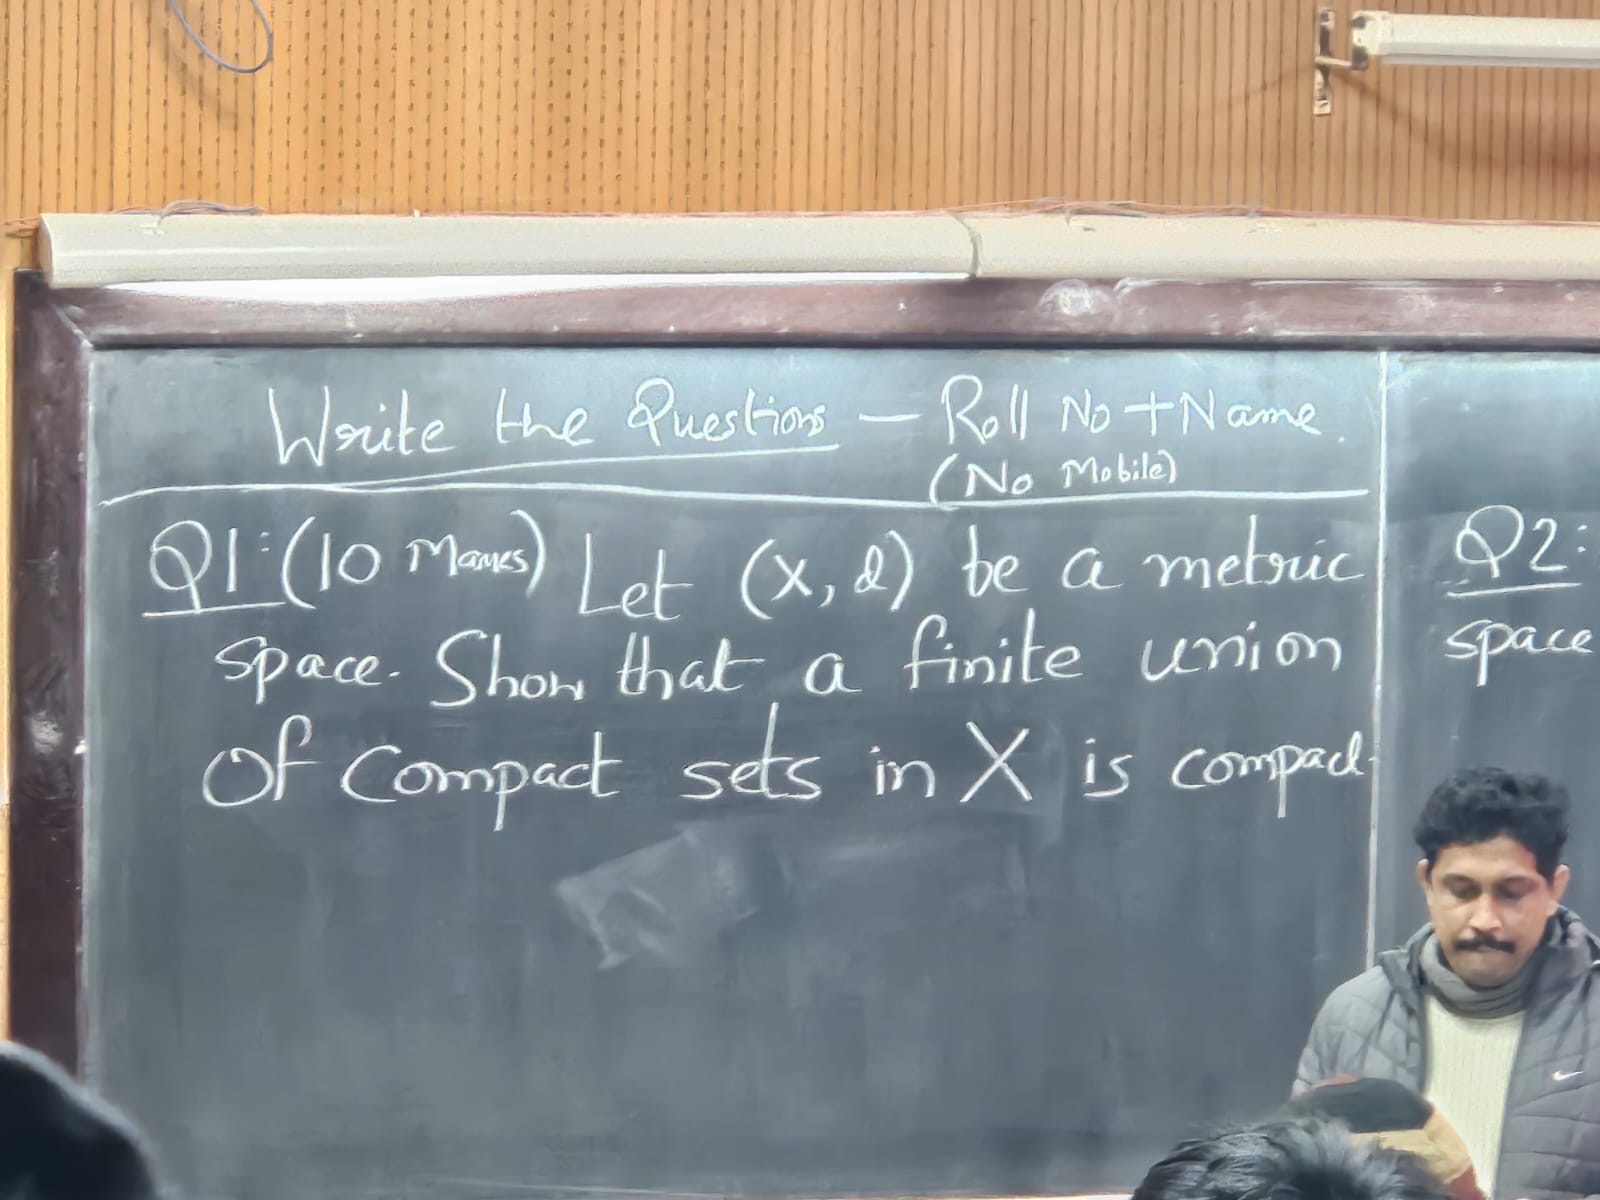 Write the Questions – Roll No + Name.
(No Mobile)
Q1: (10 Marks) Let (X, d) be a metric
space. Show that a finite union
of compact sets in X is compact.
Q2:
space